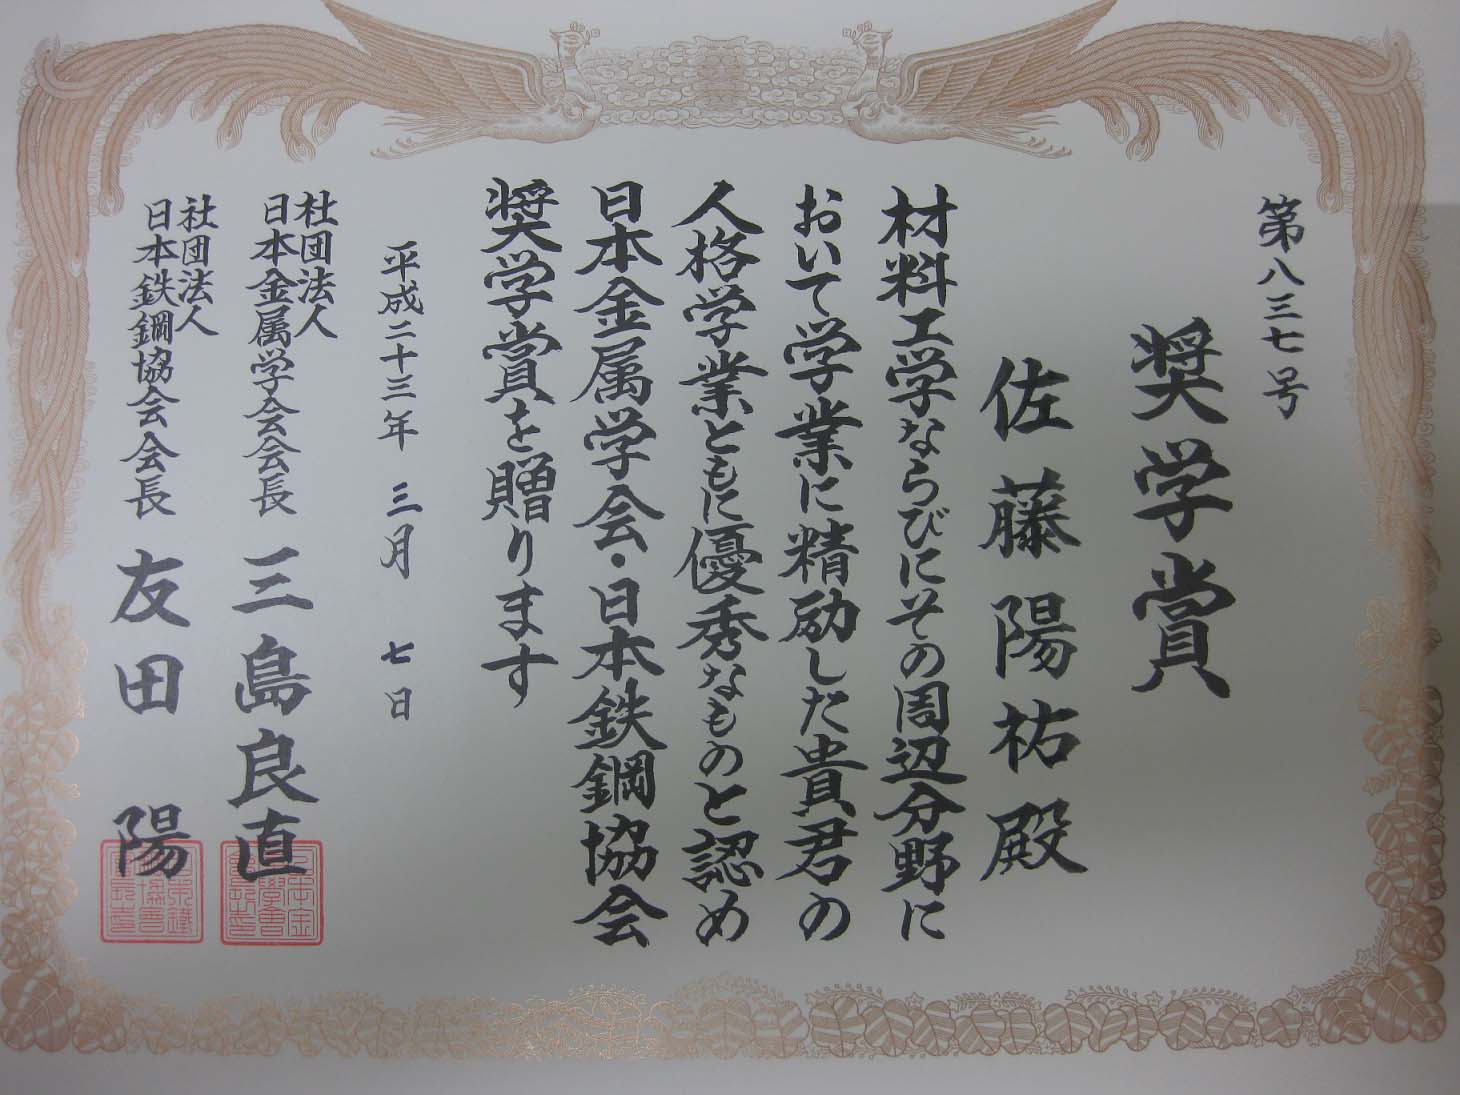 第八三七号
奨学賞
佐藤陽祐殿
材料工学ならびにその周辺分野に
おいて学業に精励した貴君の
人格学業ともに優秀なものと認め
日本金属学会・日本鉄鋼協会
奨学賞を贈ります
平成二十三年 三月 七日
社団法人
日本金属学会会長 三島良直
社団法人
日本鉄鋼協会会長 友田 陽